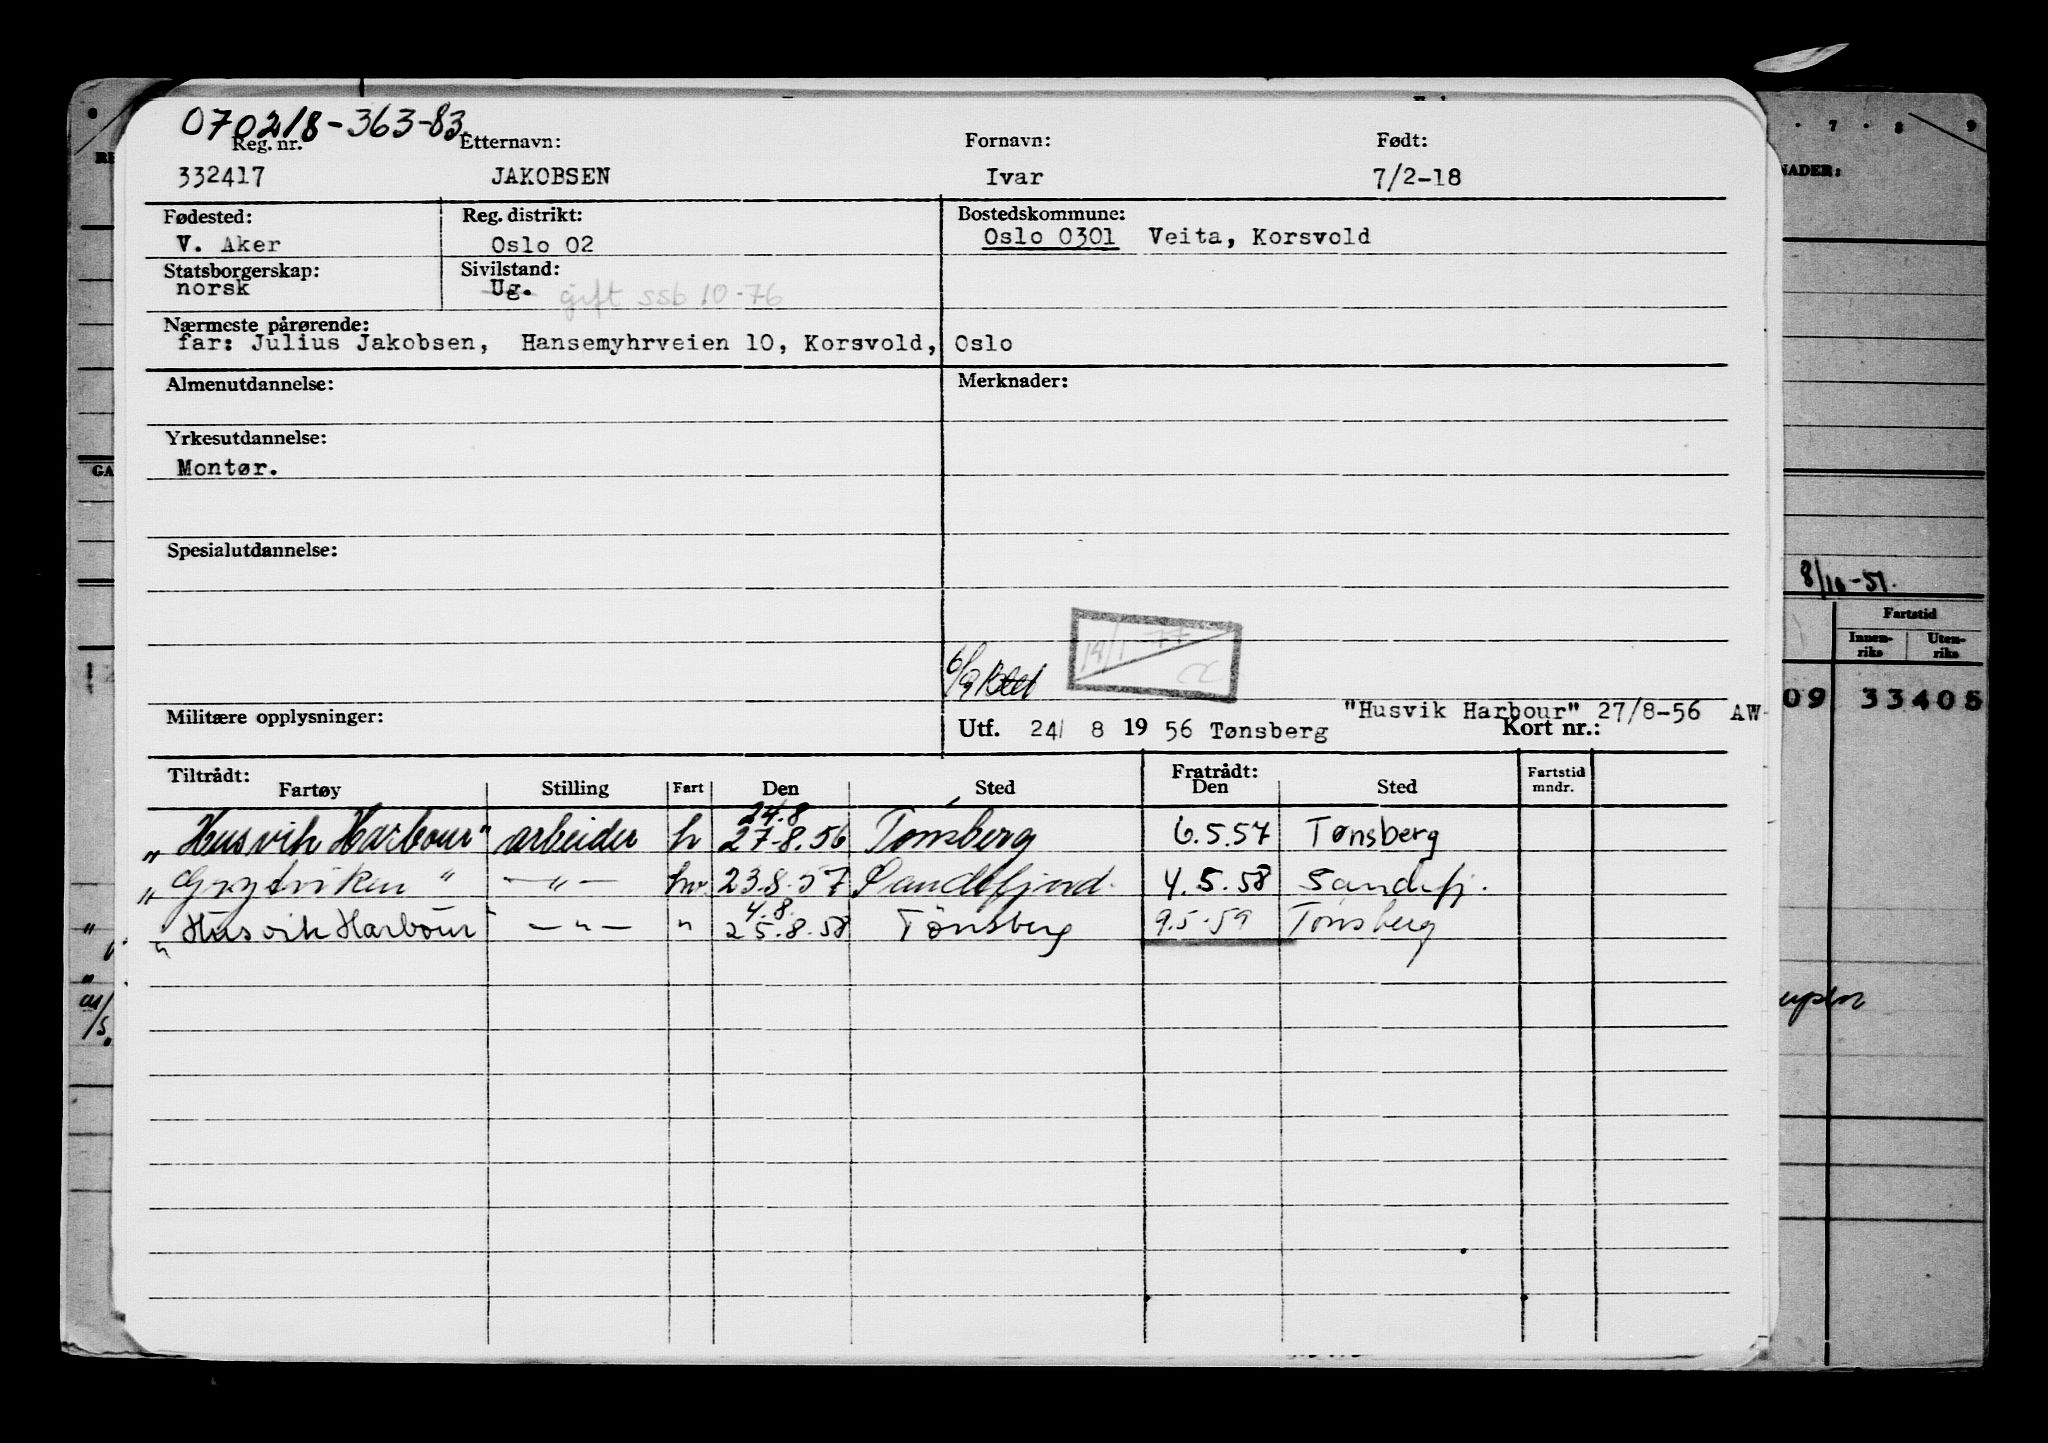 070218-363-83
Reg. nr. Etternavn: Fornavn: Født:
332417 JAKOBSEN Ivar 7/2-18
Fødested: Reg. distrikt: Bostedskommune:
V. Aker Oslo 02 Oslo 0301 Veita, Korsvold
Statsborgerskap: Sivilstand:
norsk Ug. gift ssb 10-76
Nærmeste pårørende:
far: Julius Jakobsen, Hansemyhrveien 10, Korsvold, Oslo
Almenutdannelse: Merknader:
Yrkesutdannelse:
Montør.
Spesialutdannelse:
8/10-51.
Fartstid
Innen-riks Uten-riks
14/1 77
6/9
09 33405
Militære opplysninger: "Husvik Harbour" 27/8-56 AW-
Utf. 24/ 8 19 56 Tønsberg Kort nr.:
Tiltrådt: Fratrådt: Fartstid
Fartøy Stilling Fart Den Sted Den Sted mndr.
24.8
"Husvik Harbour" arbeider h 27-8.56 Tønsberg 6.5.57 Tønsberg
"Grytviken" —„— hv. 23.8.57 Sandefjord. 4.5.58 Sandefj.
4.8.
"Husvik Harbour" —„— " 25.8.58 Tønsberg 9.5.59 Tønsberg